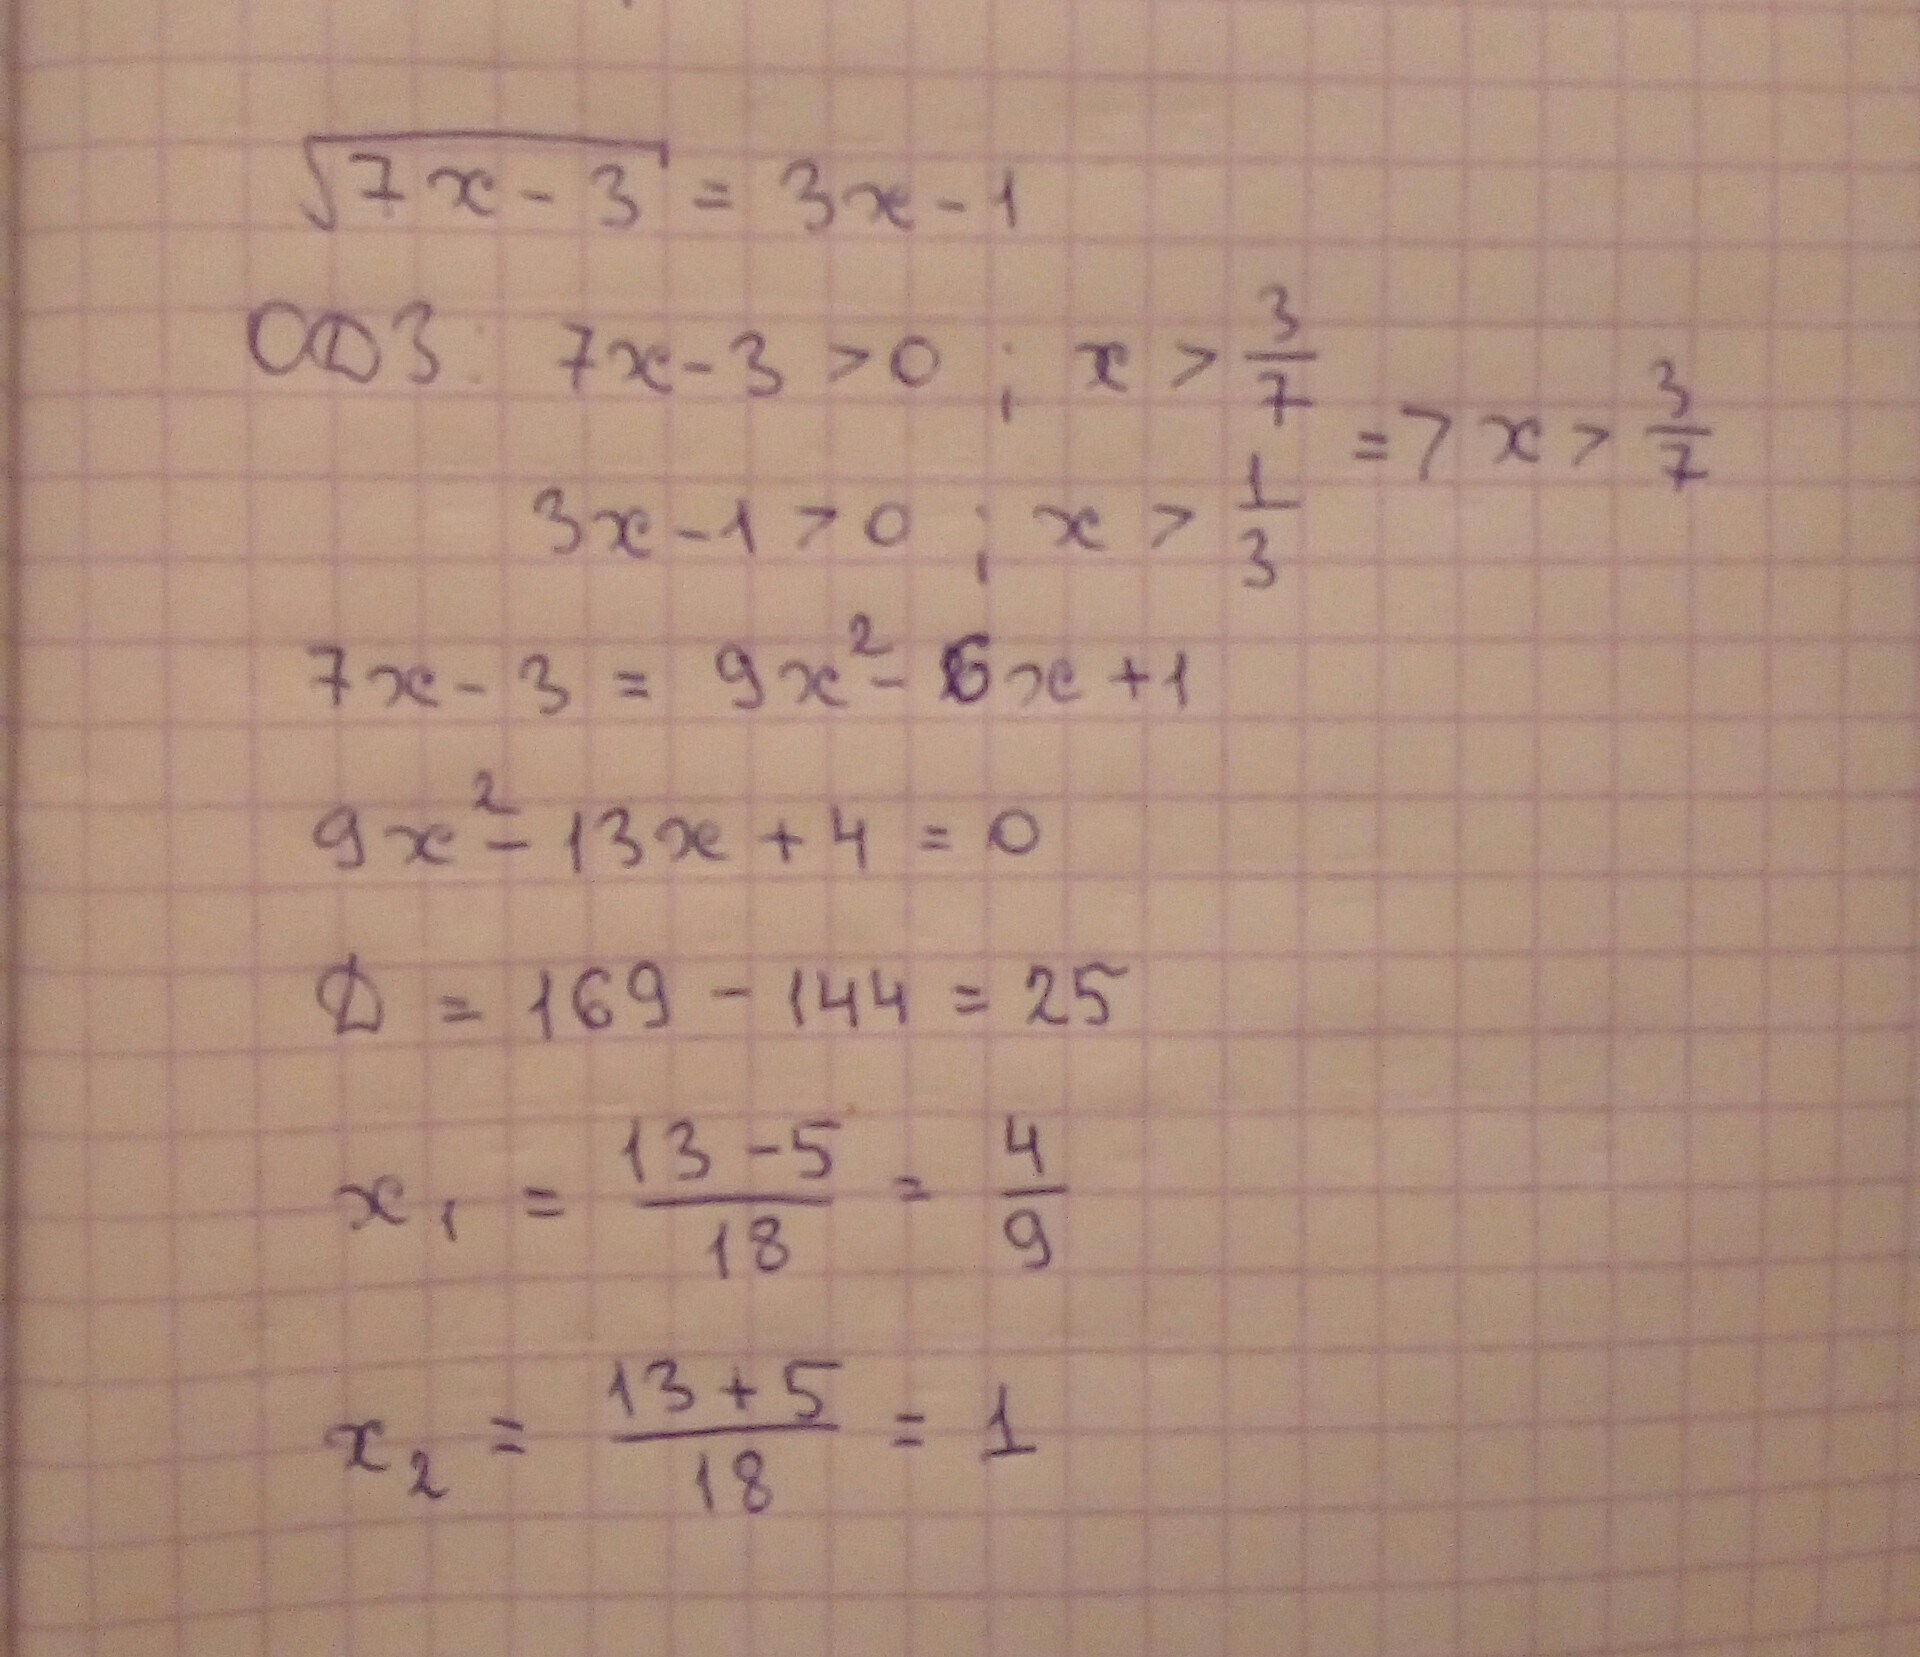 √(7x - 3) = 3x - 1
ОДЗ: 7x - 3 > 0 ; x > 3/7
=> x > 3/7
3x - 1 > 0 ; x > 1/3
7x - 3 = 9x² - 6x + 1
9x² - 13x + 4 = 0
D = 169 - 144 = 25
x₁ = (13 - 5)/18 = 4/9
x₂ = (13 + 5)/18 = 1